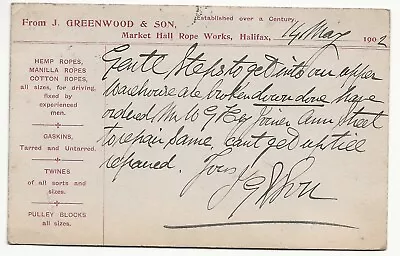 From J. GREENWOOD & SON,
Established over a Century.
Market Hall Rope Works, Halifax,
14 May 1902
HEMP ROPES,
MANILLA ROPES
COTTON ROPES,
all sizes, for driving,
fixed by
experienced
men.
GASKINS,
Tarred and Untarred.
TWINES
of all sorts and
sizes.
PULLEY BLOCKS
all sizes.
Gents Steps to get into our upper
warehouse are broken down have
ordered Mr W G Joiner Ann Street
to repair same, cant get up till
repaired.
Yours
J G & Son